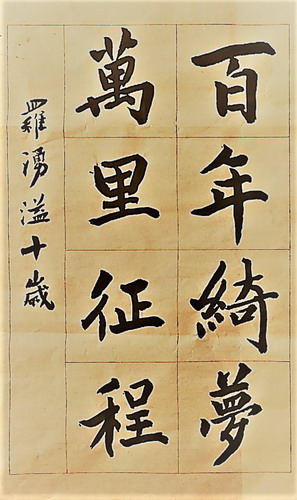 百年綺夢
萬里征程
羅湧溢十歲